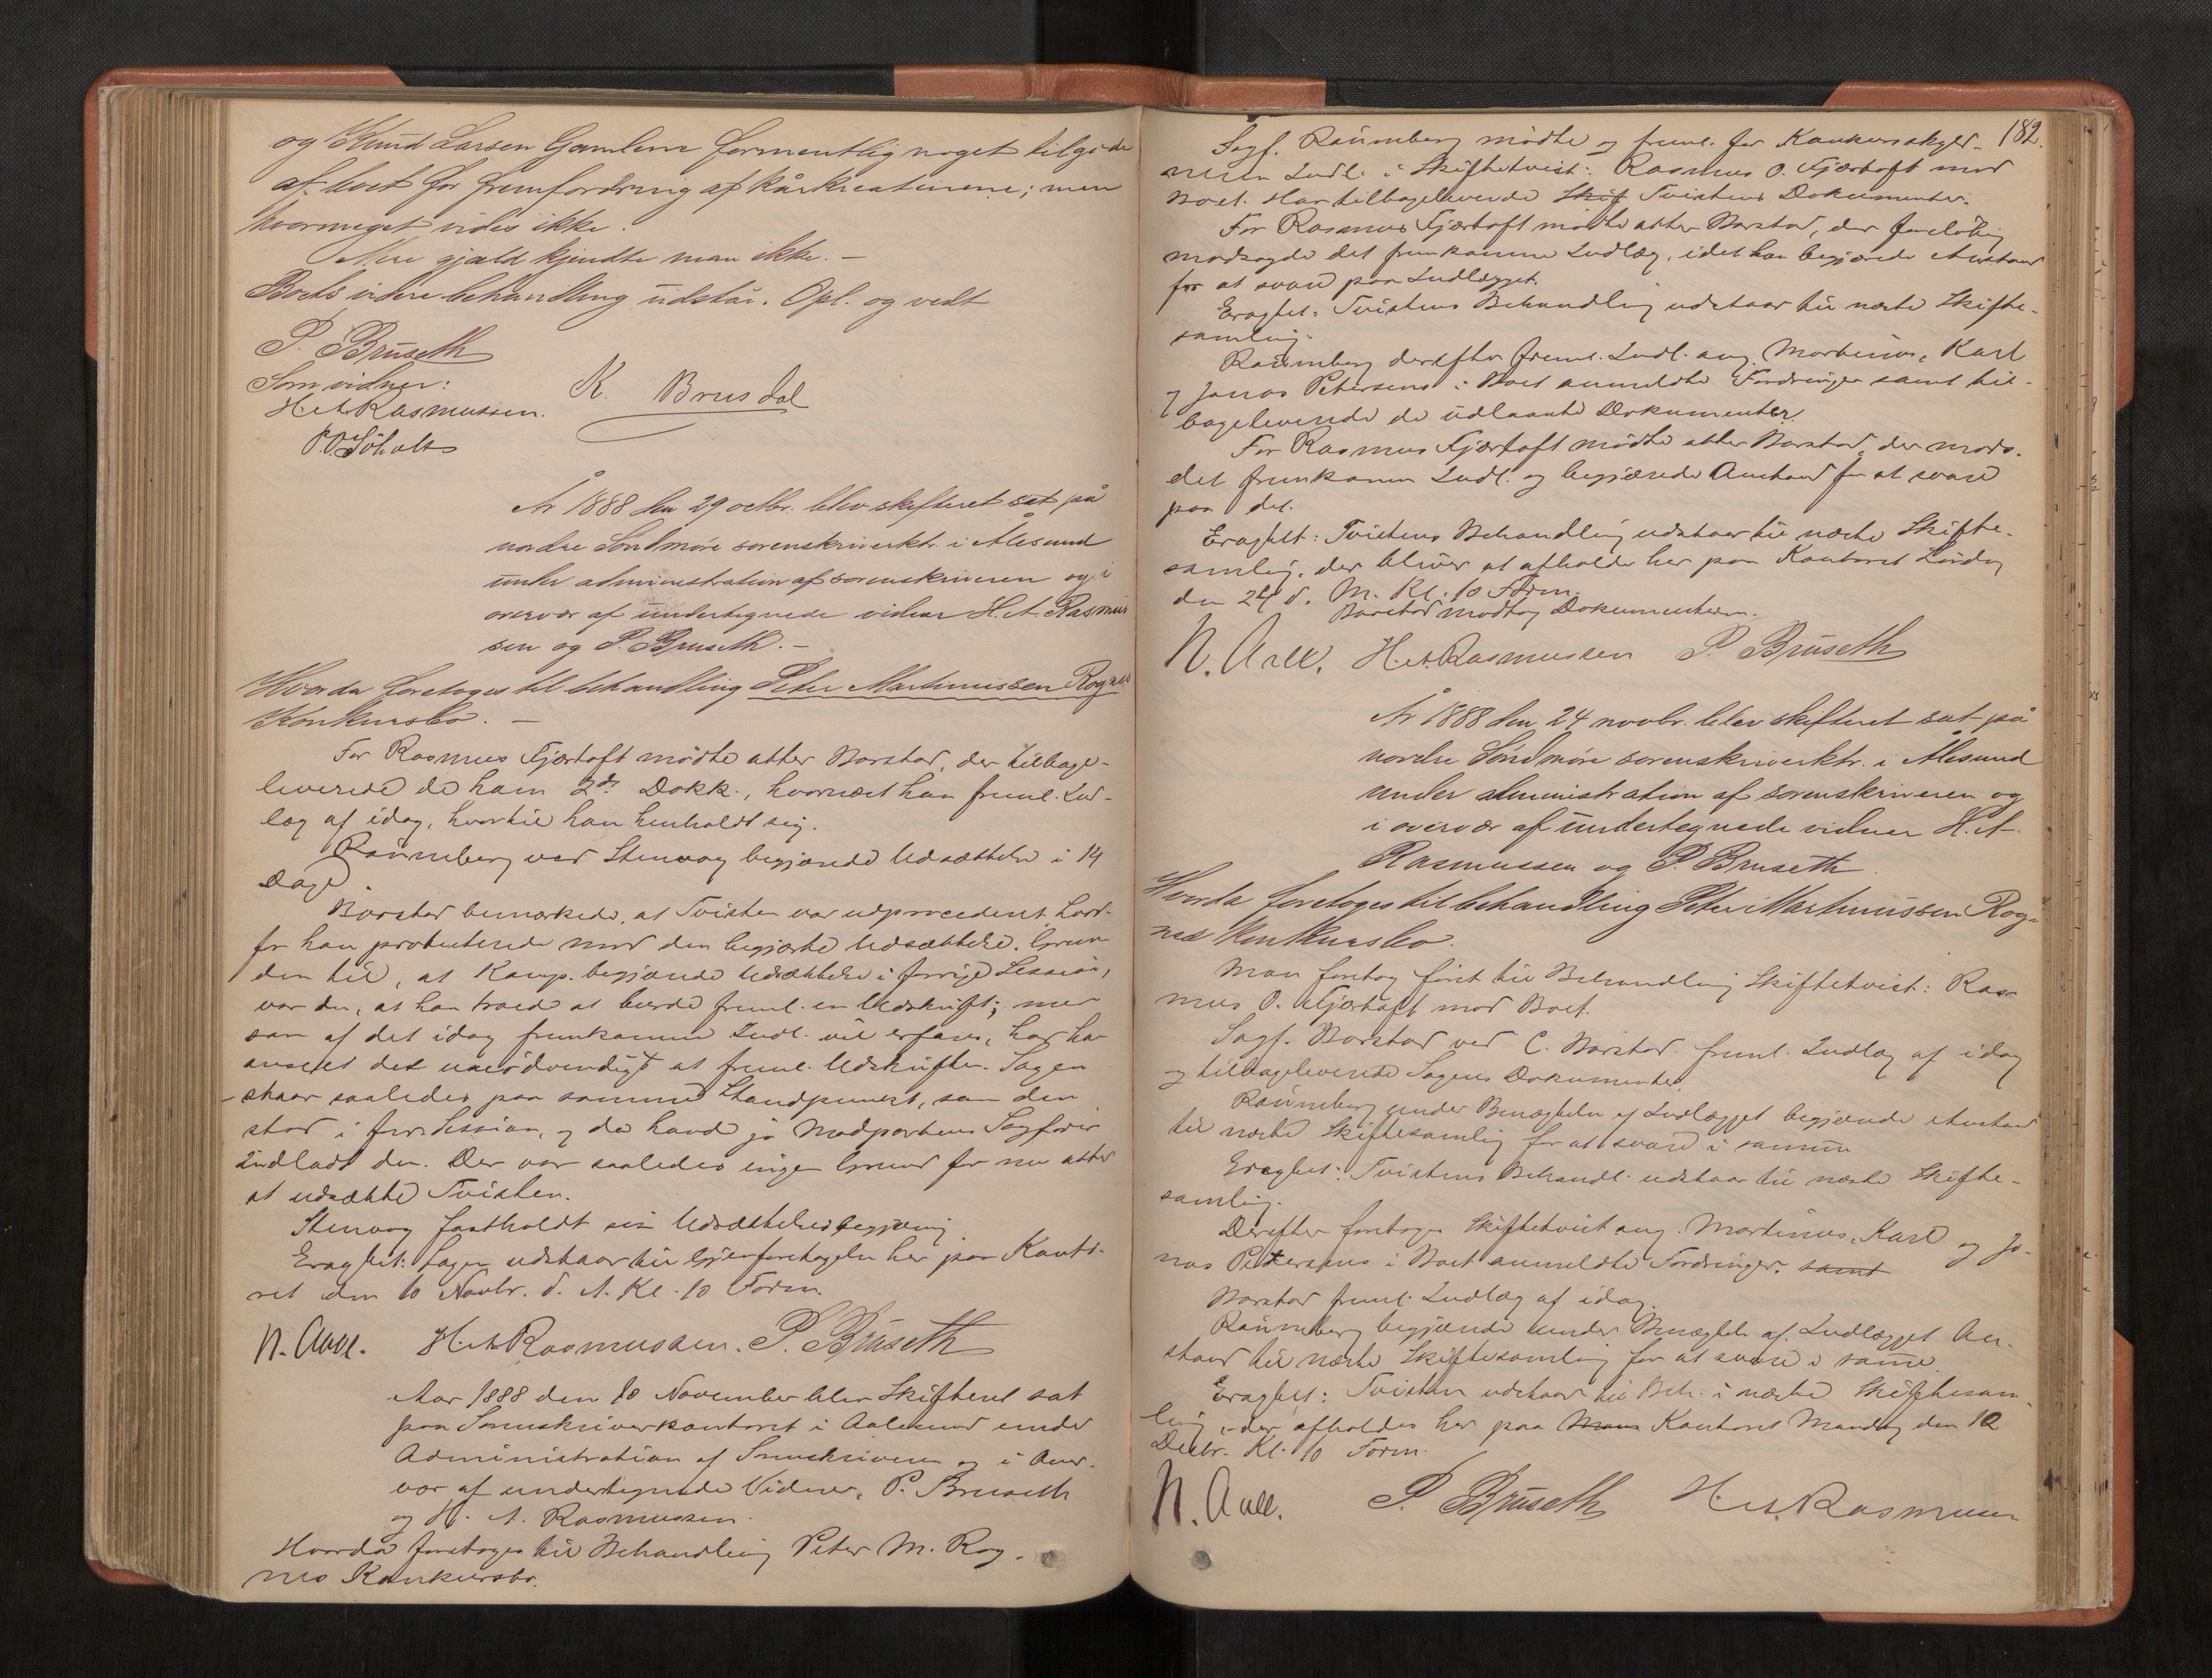 og Knud Larsen Gamlem formentlig noget tilgode
af boet for fremfordring af kårkreaturene; men
hvormeget vides ikke.
Mere gjæld kjendte man ikke. –
Boets videre behandling udstår. Opl. og vedt
P. Bruseth
Som vidner:
H. A. Rasmussen.
K. Brusdal
P. O. Søholt
År 1888 den 29 octbr. blev skifteret sat på
nordre Søndmøre sorenskriverktr. i Ålesund
under administration af sorenskriveren og i
overvær af undertegnede vidner H. A. Rasmus
sen og P. Bruseth. –
Hvorda foretoges til behandling Peter Martinussen Rognes
Konkursbo. –
For Rasmus Fjærtoft mødte atter Barstad, der tilbage-
leverede de ham Dokk., hvornæst han freml. Ind-
læg af idag, hvortil han henholdt sig.
Rønneberg ved Stenvaag begjærede Udsættelse i 14
Dage.
Barstad bemærkede, at Tvisten var udprocederet, hvor-
for han protesterede mod den begjærte Udsættelse. Grun
den til, at Komp. begjærede Udsættelse i forrige Session,
var den, at han troede at burde freml. en Udskrift; men
som af det idag fremkomne Indl. vil erfares, har han
anseet det unødvendigt at freml. Udskriften. Sagen
staar saaledes paa samme Standpunkt, som den
stod i forr. Session, og da havde jo Modpartens Sagfører
indladt den. Der var saaledes ingen Grund for nu atter
at udsætte Tvisten.
Stenvaag fastholdt sin Udsættelsesbegjæring.
Eragtet: Sagen udstaar til Gjenforetagelse her paa Konto-
ret den 10 Novbr. d. A. Kl. 10 Form.
N. Aall. H. A. Rasmussen. P. Bruseth
Aar 1888 den 10 November blev Skifteret sat
paa Sorenskriverkontoret i Aalesund under
Administration af Sorenskriveren og i Over-
vær af undertegnede Vidner, P. Bruseth
og H. A. Rasmussen.
Hvorda foretoges til Behandling Peter M. Rog-
nes Konkursbo.
182.
Sagf. Rønneberg mødte og freml. for Konkursskyld-
neren Indl. i Skiftetvist: Rasmus O. Fjærtoft mod
Boet. Han tilbageleverede Skif Tvistens Dokumenter.
For Rasmus Fjærtoft mødte atter Barstad, der foreløbig
modsagde det fremkomne Indlæg, idet han begjærede Anstand
for at svare paa Indlægget.
Eragtet: Tvistens Behandling udstaar til næste Skifte-
samling.
Rønneberg derefter freml. Indl. ang. Martinus, Karl
og Jonas Petersens i Boet anmeldte Fordringer samt til-
bageleverede de udlaante Dokumenter.
For Rasmus Fjærtoft mødte atter Barstad, der mods.
det fremkomne Indl. og begjærede Anstand for at svare
paa det.
Eragtet: Tvistens Behandling udstaar til næste Skifte-
samling, der bliver at afholde her paa Kontoret Lørdag
den 24 d. M. Kl. 10 Form.
Barstad modtog Dokumenterne.
N. Aall. H. A. Rasmussen P. Bruseth
År 1888 den 24 novbr. blev skifteret sat på
nordre Søndmøre sorenskriverktr. i Ålesund
under administration af sorenskriveren og
i overvær af undertegnede vidner H. A.
Rasmussen og P. Bruseth.
Hvorda foretoges til behandling Peter Martinussen Rog-
nes konkursbo.
Man foretog først til Behandling Skiftetvist: Ras-
mus O. Fjærtoft mod Boet.
Sagf. Barstad ved C. Barstad freml. Indlæg af idag
og tilbageleverede Sagens Dokumenter.
Rønneberg under Benægtelse af Indlægget begjærede Anstand
til næste Skiftesamling for at svare i samme
Eragtet: Tvistens Behandl. udstaar til næste Skifte-
samling.
Derefter foretoges Skiftetvist ang. Martinus, Karl og Jo-
nas Petersens i Boet anmeldte Fordringer. samt
Barstad freml. Indlæg af idag.
Rønneberg begjærede under Benægtelse af Indlægget An-
stand til næste Skiftesamling for at svare i samme.
Eragtet: Tvisten udstaar til Beh. i næste Skiftesam-
ling, der afholdes her paa Man Kontoret Mandag den 10
Decbr. Kl. 10 Form.
N. Aall. P. Bruseth H. A. Rasmussen